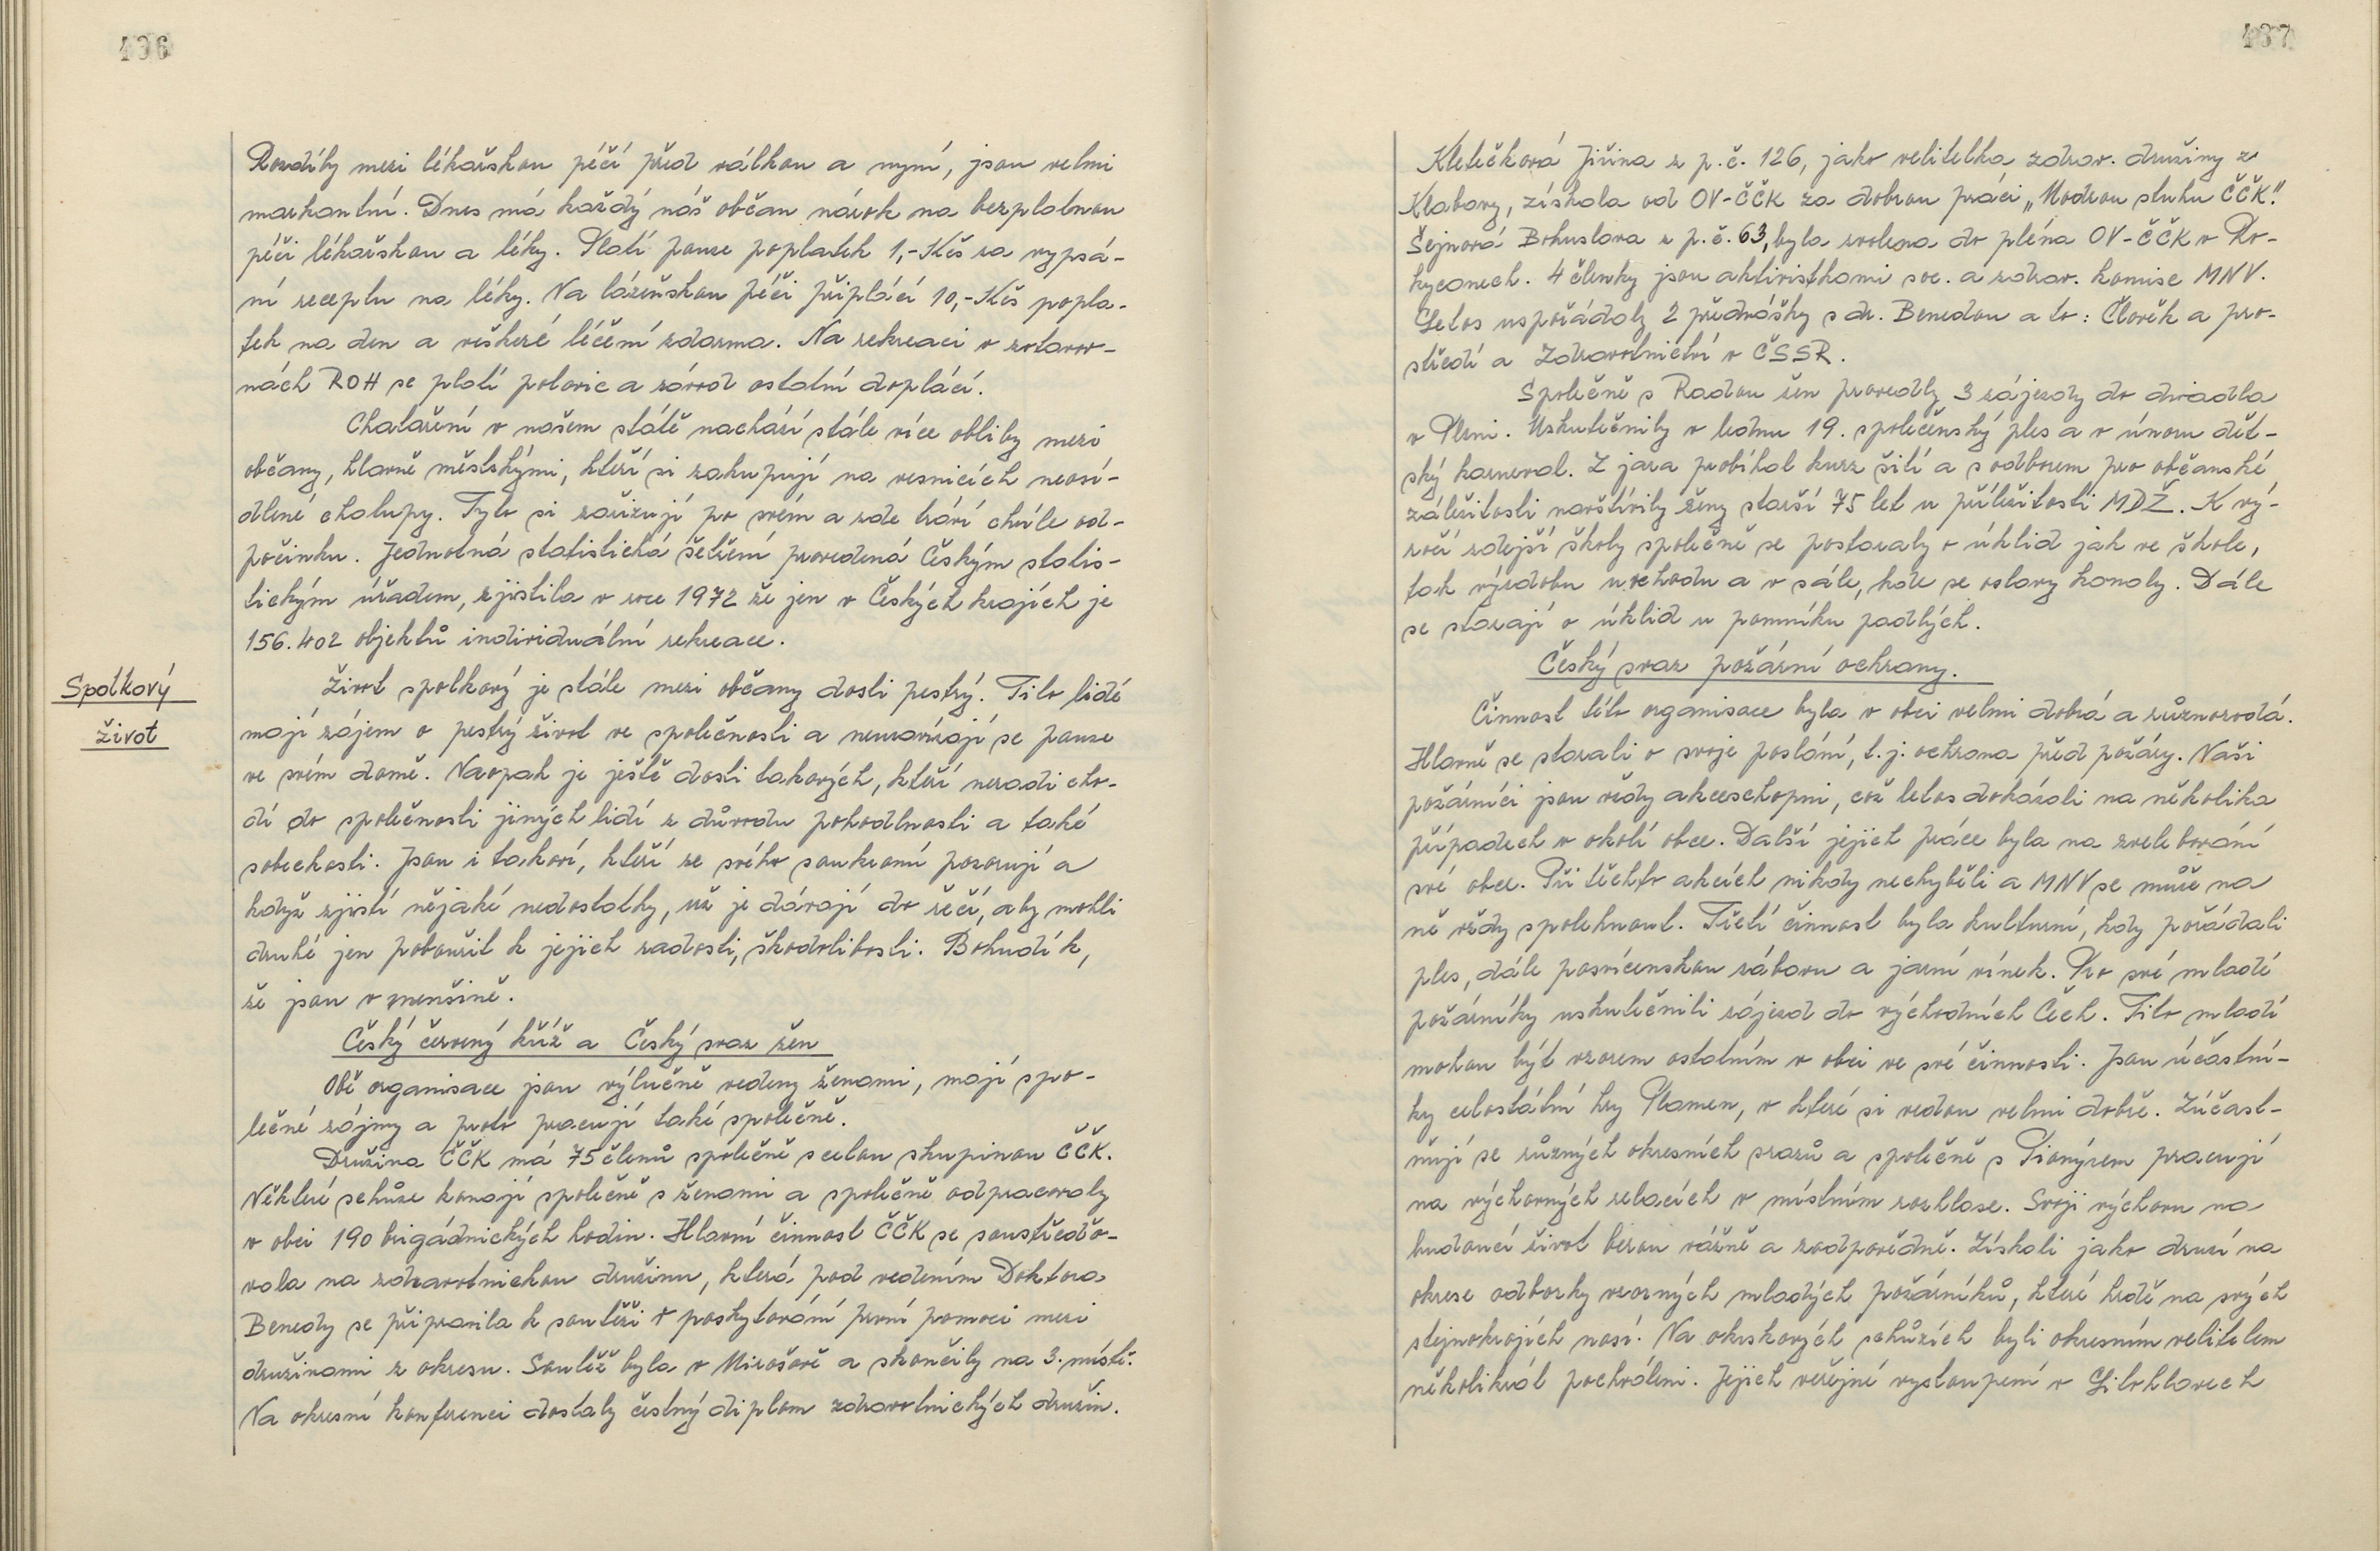 436
Rozdíly mezi lékařskou péčí před válkou a nyní, jsou velmi
markantní. Dnes má každý náš občan nárok na bezplatnou
péči lékařskou a léky. Platí pouze poplatek 1,-Kčs za vypsá-
ní receptu na léky. Na lázeňskou péči připlácí 10,-Kčs popla-
tek na den a veškeré léčení zdarma. Na rekreaci v zotavov-
nách ROH se platí polovic a závod ostatní doplácí.
Chataření v našem státě nachází stále více obliby mezi
občany, hlavně městskými, kteří si zakupují na vesnicích neosí-
dlené chalupy. Tyto si zařizují po svém a zde tráví chvíle od-
počinku. Jednotná statistická šetření provedená Českým statis-
tickým úřadem, zjistila v roce 1972 že jen v Českých krajích je
156.402 objektů individuální rekreace.
Spolkový
život
Život spolkový je stále mezi občany dosti pestrý. Tito lidé
mají zájem o pestrý život ve společnosti a neuzavírají se pouze
ve svém domě. Naopak je ještě dosti takových, kteří neradi cho-
dí do společnosti jiných lidí z důvodu pohodlnosti a také
sobeckosti. Jsou i takoví, kteří ze svého soukromí pozorují a
když zjistí nějaké nedostatky, už je dávají do řečí, aby mohli
druhé jen pobouřit k jejich radosti, škodolibosti. Bohudík,
že jsou v menšině.
Český červený kříž a Český svaz žen
Obě organisace jsou výlučně vedeny ženami, mají spo-
lečné zájmy a proto pracují také společně.
Družina ČČK má 75 členů společně s celou skupinou ČČK.
Některé schůze konají společně s ženami a společně odpracovaly
v obci 190 brigádnických hodin. Hlavní činnost ČČK se soustředo-
vala na zdravotnickou družinu, která pod vedením Doktora
Benedy se připravila k soutěži v poskytování první pomoci mezi
družinami z okresu. Soutěž byla v Mirošově a skončily na 3. místě.
Na okresní konferenci dostaly čestný diplom zdravotnických družin.
437
Kletečková Jiřina z p.č. 126, jako velitelka zdrav. družiny z
Klabavy, získala od OV-ČČK za dobrou práci „Modrou stuhu ČČK".
Šejnová Bohuslava z p.č. 63, byla zvolena do pléna OV-ČČK v Ro-
kycanech. 4 členky jsou aktivistkami soc. a zdrav. komise MNV.
Letos uspořádaly 2 přednášky s dr. Benedou a to: Člověk a pro-
středí a Zdravotnictví v ČSSR.
Společně s Radou žen provedly 3 zájezdy do divadla
v Plzni. Uskutečnily v lednu 19. společenský ples a v únoru dět-
ský karneval. Z jara probíhal kurz šití a s odborem pro občanské
záležitosti navštívily ženy starší 75 let u příležitosti MDŽ. K vý-
ročí zdejší školy společně se postaraly o úklid jak ve škole,
tak výzdobu u vchodu a v sále, kde se oslavy konaly. Dále
se starají o úklid u pomníku padlých.
Český svaz požární ochrany.
Činnost této organisace byla v obci velmi dobrá a různorodá.
Hlavně se starali o svoje poslání, t.j. ochrana před požáry. Naši
požárníci jsou vždy akceschopni, což letos dokázali na několika
případech v okolí obce. Další jejich práce byla na zvelebování
své obce. Při těchto akcích nikdy nechyběli a MNV se může na
ně vždy spolehnout. Třetí činnost byla kulturní, kdy pořádali
ples, dále posvícenskou zábavu a jarní vínek. Pro své mladé
požárníky uskutečnili zájezd do východních Čech. Tito mladí
mohou být vzorem ostatním v obci ve své činnosti. Jsou účastní-
ky celostátní hry Plamen, v které si vedou velmi dobře. Zúčast-
ňují se různých okresních srazů a společně s Pionýrem pracují
na výchovných relacích v místním rozhlase. Svoji výchovu na
budoucí život berou vážně a zodpovědně. Získali jako druzí na
okrese odborky vzorných mladých požárníků, které hrdě na svých
stejnokrojích nosí. Na okrskových schůzích byli okresním velitelem
několikrát pochváleni. Jejich veřejné vystoupení v Litohlavech